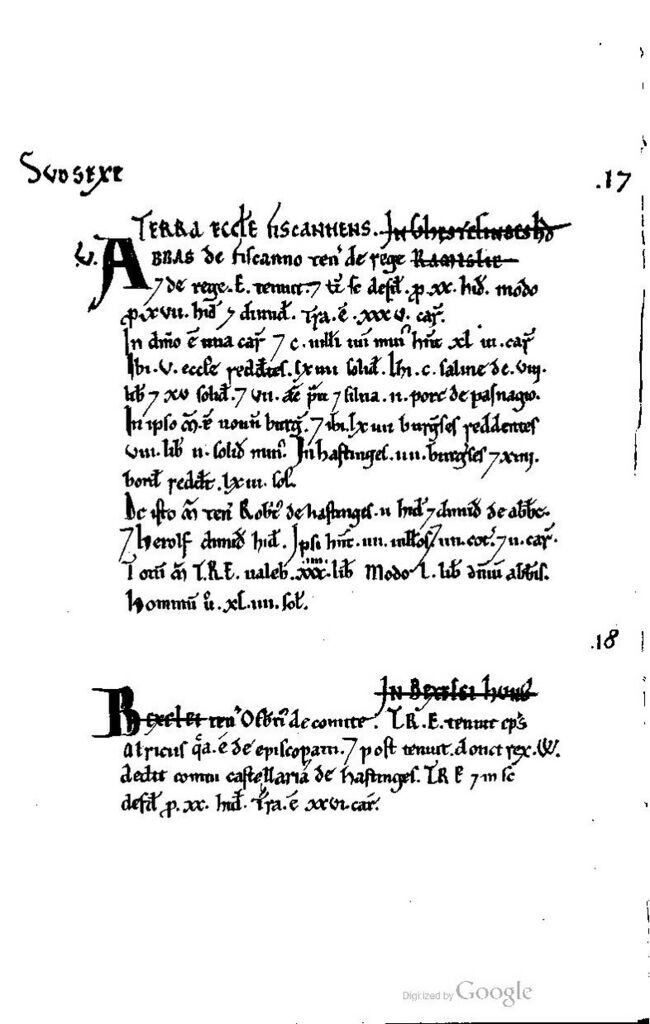 SUDSEXE
.17
TERRA ECCLE FISCANNENS. In Ghestelinges hd
V. ABBAS de Fiscanno ten' de rege Rameslie
⁊ de rege. E. tenuit. ⁊ t̄c se defd̄. p̱. xx. hid̄. modo
p̱ xvii. hid̄ ⁊ dimid̄. Tr̄a. ē. xxxv. car̄.
In dn̄io ē una car̄ ⁊ c. uilli iiii min' hn̄t xl iii. car̄
Ibi. v. eccle reddtes. lxiiii solid̄. Ibi. c. saline de. viii.
lib̄ ⁊ xv solid̄. ⁊ vii. ac̄ p̄ti ⁊ silua. ii. porc̄ de pasnagio.
In ipso m̄. ē nouu burḡ. ⁊ ibi. lxiiii burg̃ses reddentes
viii. lib̄ ii. solid̄ min'. In hastinges. iiii. burg̃ses ⁊ xiiii.
bord̄ reddt̄. lxiii. sol̄.
De isto m̄ ten' Robt' de hastinges. ii hid̄ ⁊ dimid̄ de abb̄e.
⁊ herolf dimid̄ hid̄. Ipsi hn̄t. iiii. uill̄os. ⁊ iiii. cot'. ⁊ ii. car̄.
Totu m̄ T.R.E. ualeb̄. xxxiiii. lib̄ Modo l. lib̄ dn̄iu abb̄is.
hominu u'. xl. iiii. sol̄.
.18
In Bexelei hund
Bexelei ten' Osbn' de comite. T.R.E. tenuit ep̄s
Alricus q̄a. ē de episcopatu. ⁊ post tenuit. donec rex. W.
dedit comiti castellariā de hastinges. T.R.E ⁊ m̄ se
defd̄ p̱. xx. hid̄. Tr̄a. ē xxvi. car̄.
Digitized by Google